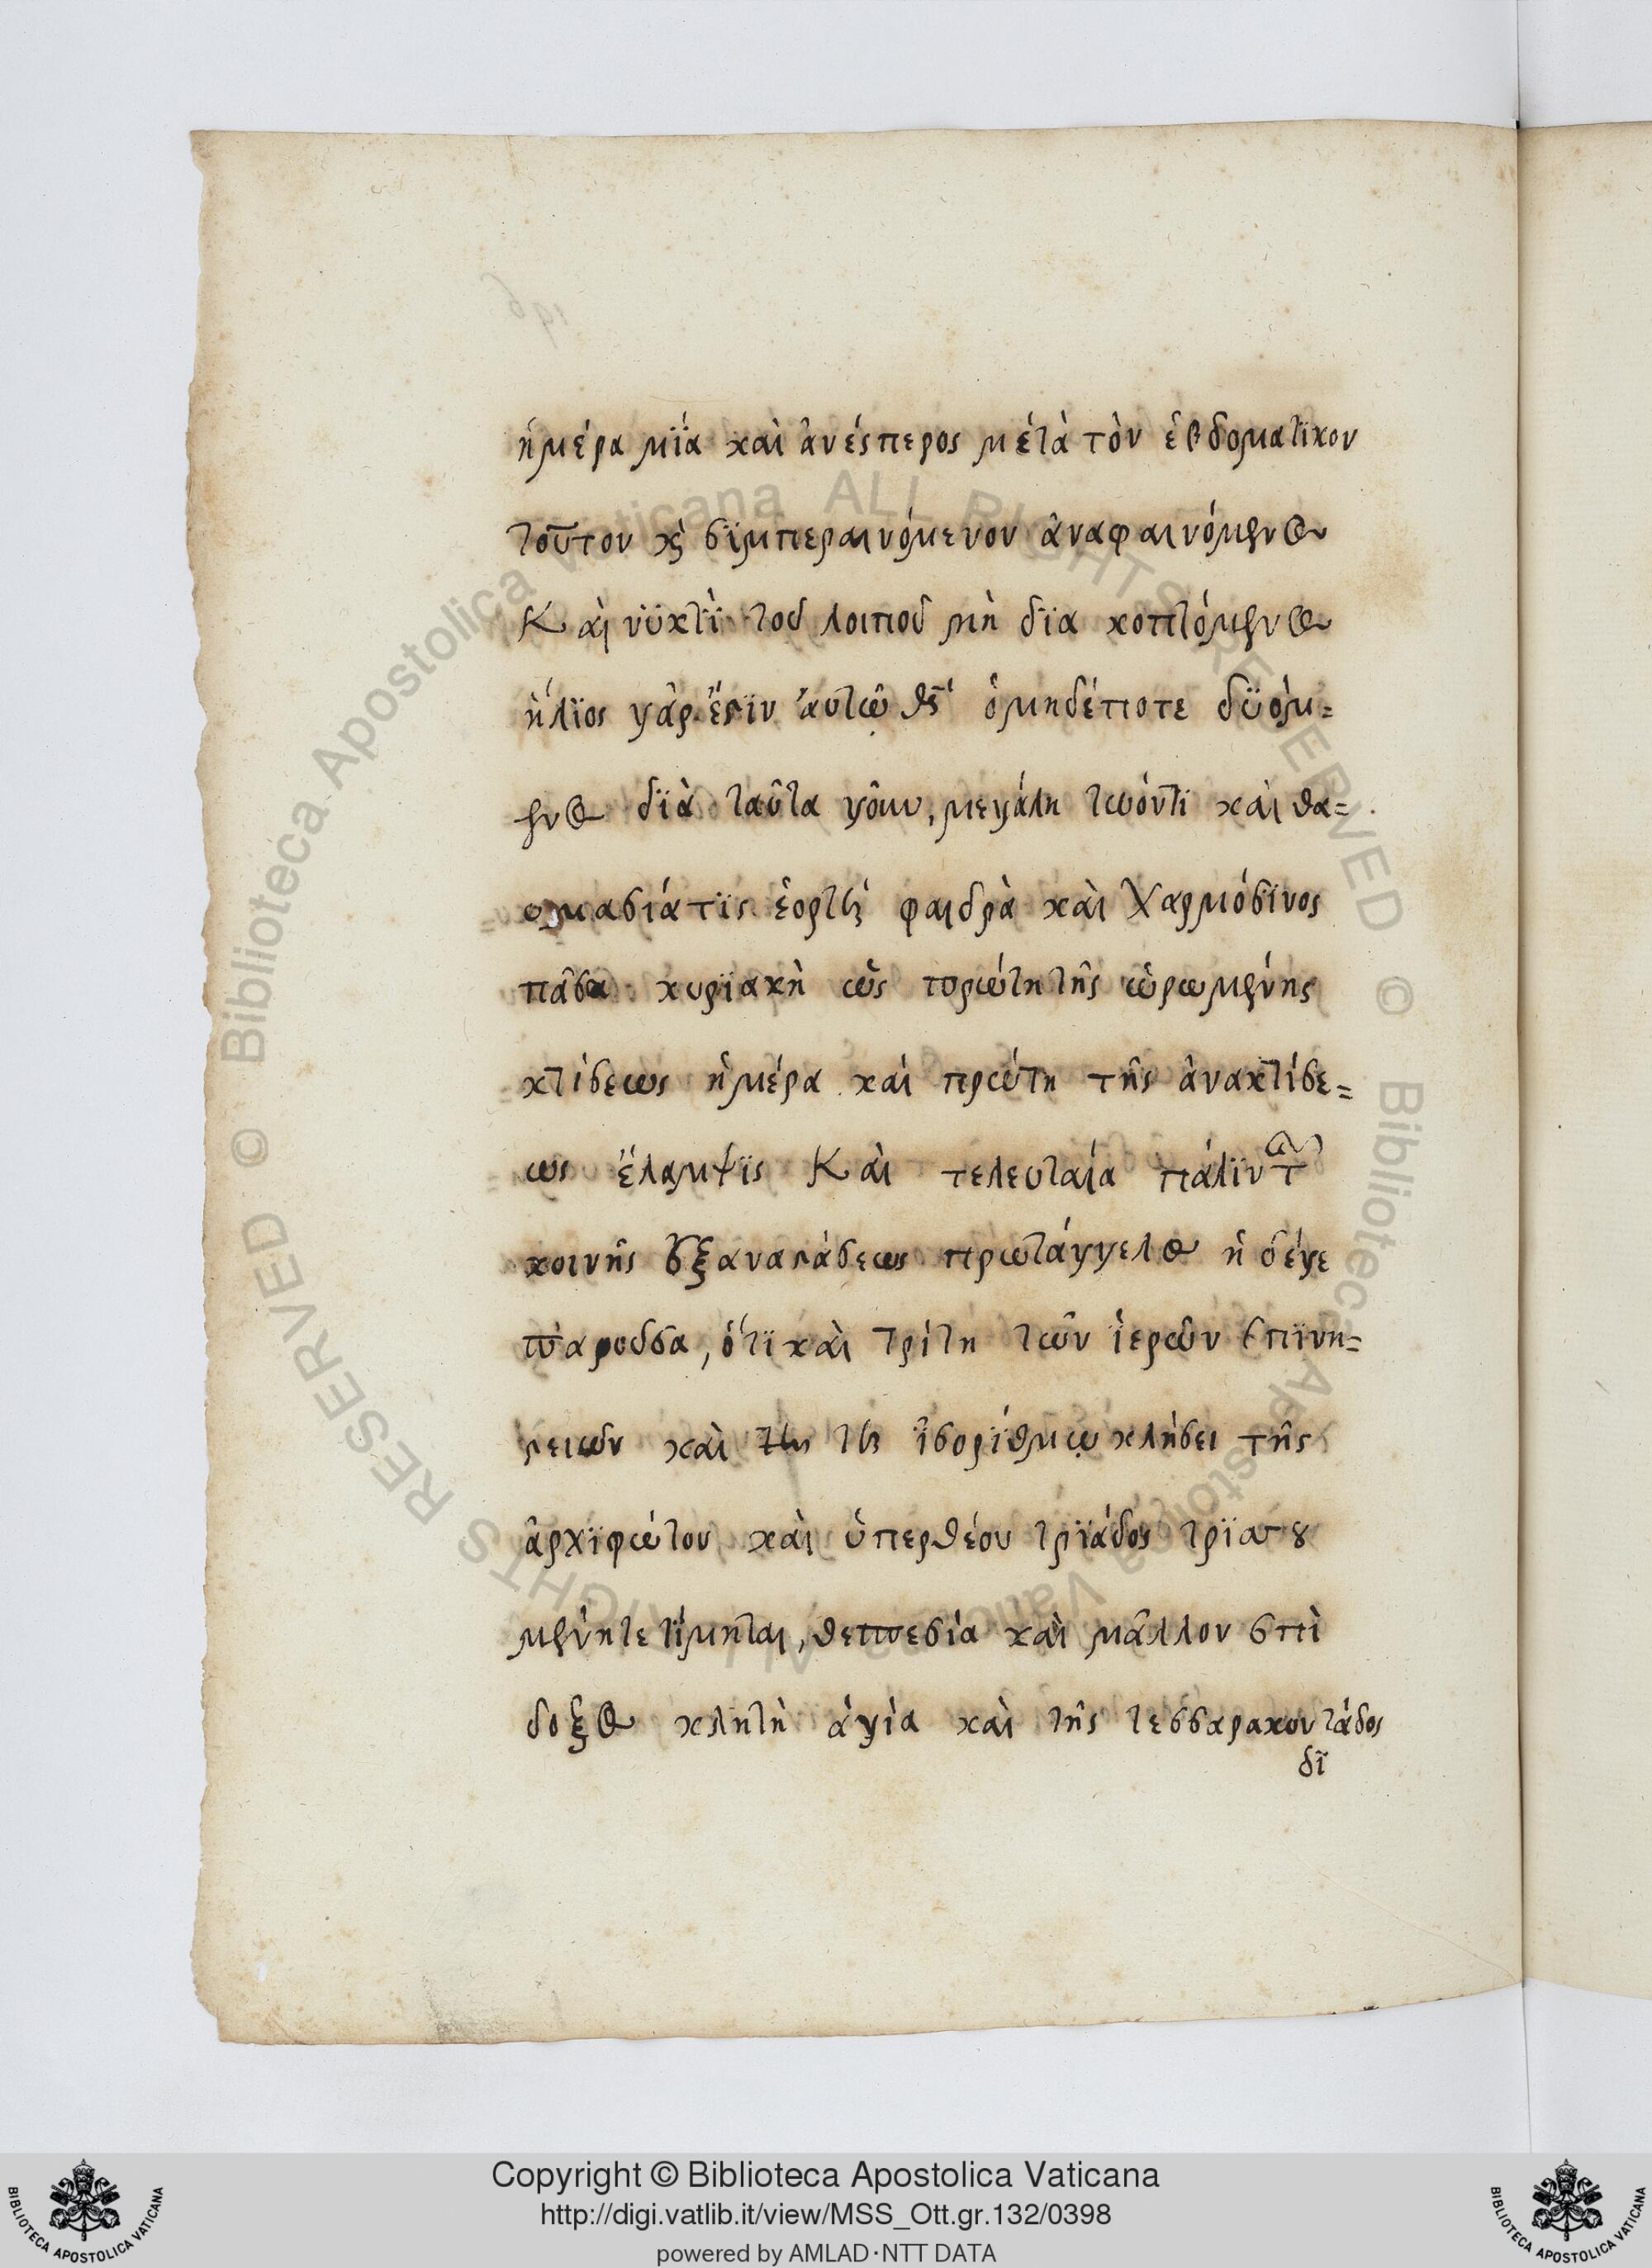 ἡμέρα μϊά καὶ ἀνέσπερος μέτὰ τὸν ἑβδοματϊκον
τοῦτον κὶ σϊμπεραινόμενον ἀναφαινόμενος
Καὶ νϋκτῒ τοῦ λοιποῦ μὴ δϊα κοπτόμενος
ἥλϊος γὰρ ἔστϊν αὐτῷ ὁμηδέποτε δϋόμ=
ενος δϊὰ ταῦτα γοῦν, μεγάλη τωόντϊ καὶ θα=
υμασιάτϊς ἑορτὴ φαιδρὰ καὶ Χαρμόσϊνος
πᾶσα κυρϊακὴ ὡς πρώτη τῆς ὡρωμένης
κτίσεως ἡμέρα καὶ πρώτη τῆς ἀνακτίσε=
ως ἔλαμψϊς Καὶ τελευταία πάλϊν τῶν
κοινῆς ἐξαναστάσεως πρωτάγγελος ἡ δέγε
παροῦσα, ὅτϊ καὶ τρίτη τῶν ἱερῶν ἐπϊνη=
στειῶν καὶ τῆ ἰσορίθμῳ κλήσει τῆς
ἀρχϊφώτου καὶ ὑπερθέου τρϊάδος
μένη τετίμηται, θεσπεσία καὶ μᾶλλον ἐπὶ
δοξος κλητὴ ἁγία καὶ τῆς τεσσαρακοντάδος
δϊ
Copyright © Biblioteca Apostolica Vaticana
http://digi.vatlib.it/view/MSS_Ott.gr.132/0398
powered by AMLAD·NTT DATA
BIBLIOTECA APOSTOLICA VATICANA
BIBLIOTECA APOSTOLICA VATICANA
Biblioteca Apostolica Vaticana ALL RIGHTS RESERVED ©
Biblioteca Apostolica Vaticana ALL RIGHTS RESERVED ©